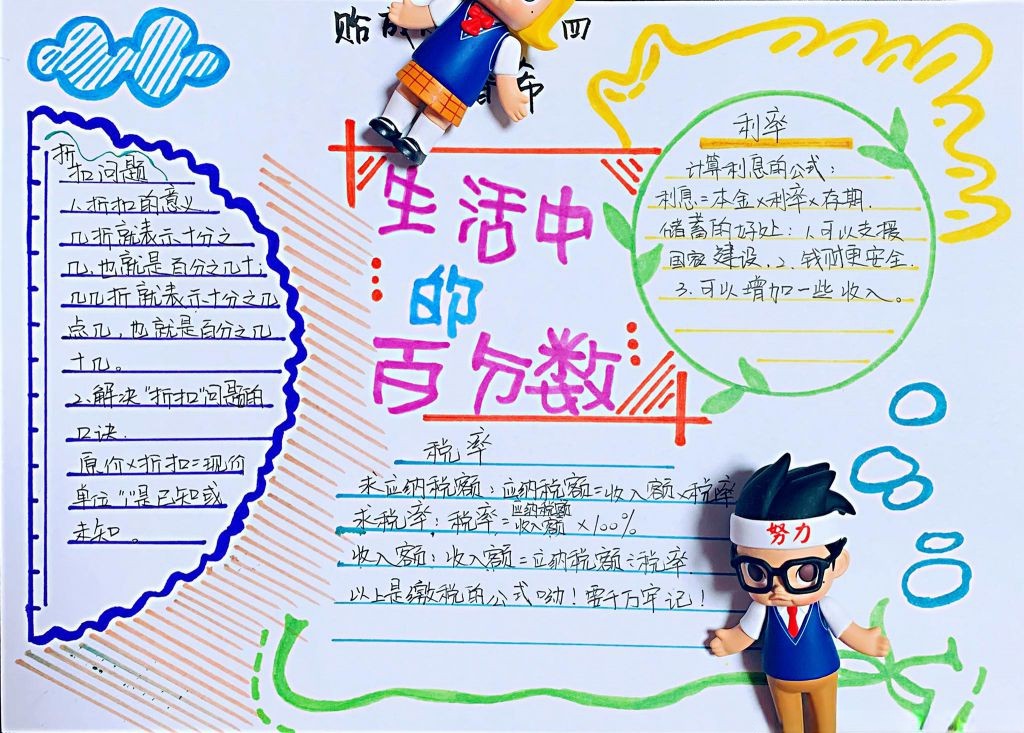 四
布
折
扣问题
1.折扣的意义.
几折就表示十分之
几,也就是百分之几十;
几几折就表示十分之几
点几,也就是百分之几
十几。
2.解决"折扣"问题的
口诀.
原价×折扣=现价
单位"1"是已知或
未知。
生活中
的
百分数
利率
计算利息的公式:
利息=本金×利率×存期.
储蓄的好处:1.可以支援
国家建设.2、钱财更安全.
3.可以增加一些收入。
税率
求应纳税额:应纳税额=收入额×税率
求税率:税率=应纳税额/收入额×100%
收入额:收入额=应纳税额÷税率.
以上是缴税的公式呦!要千万牢记!
努力